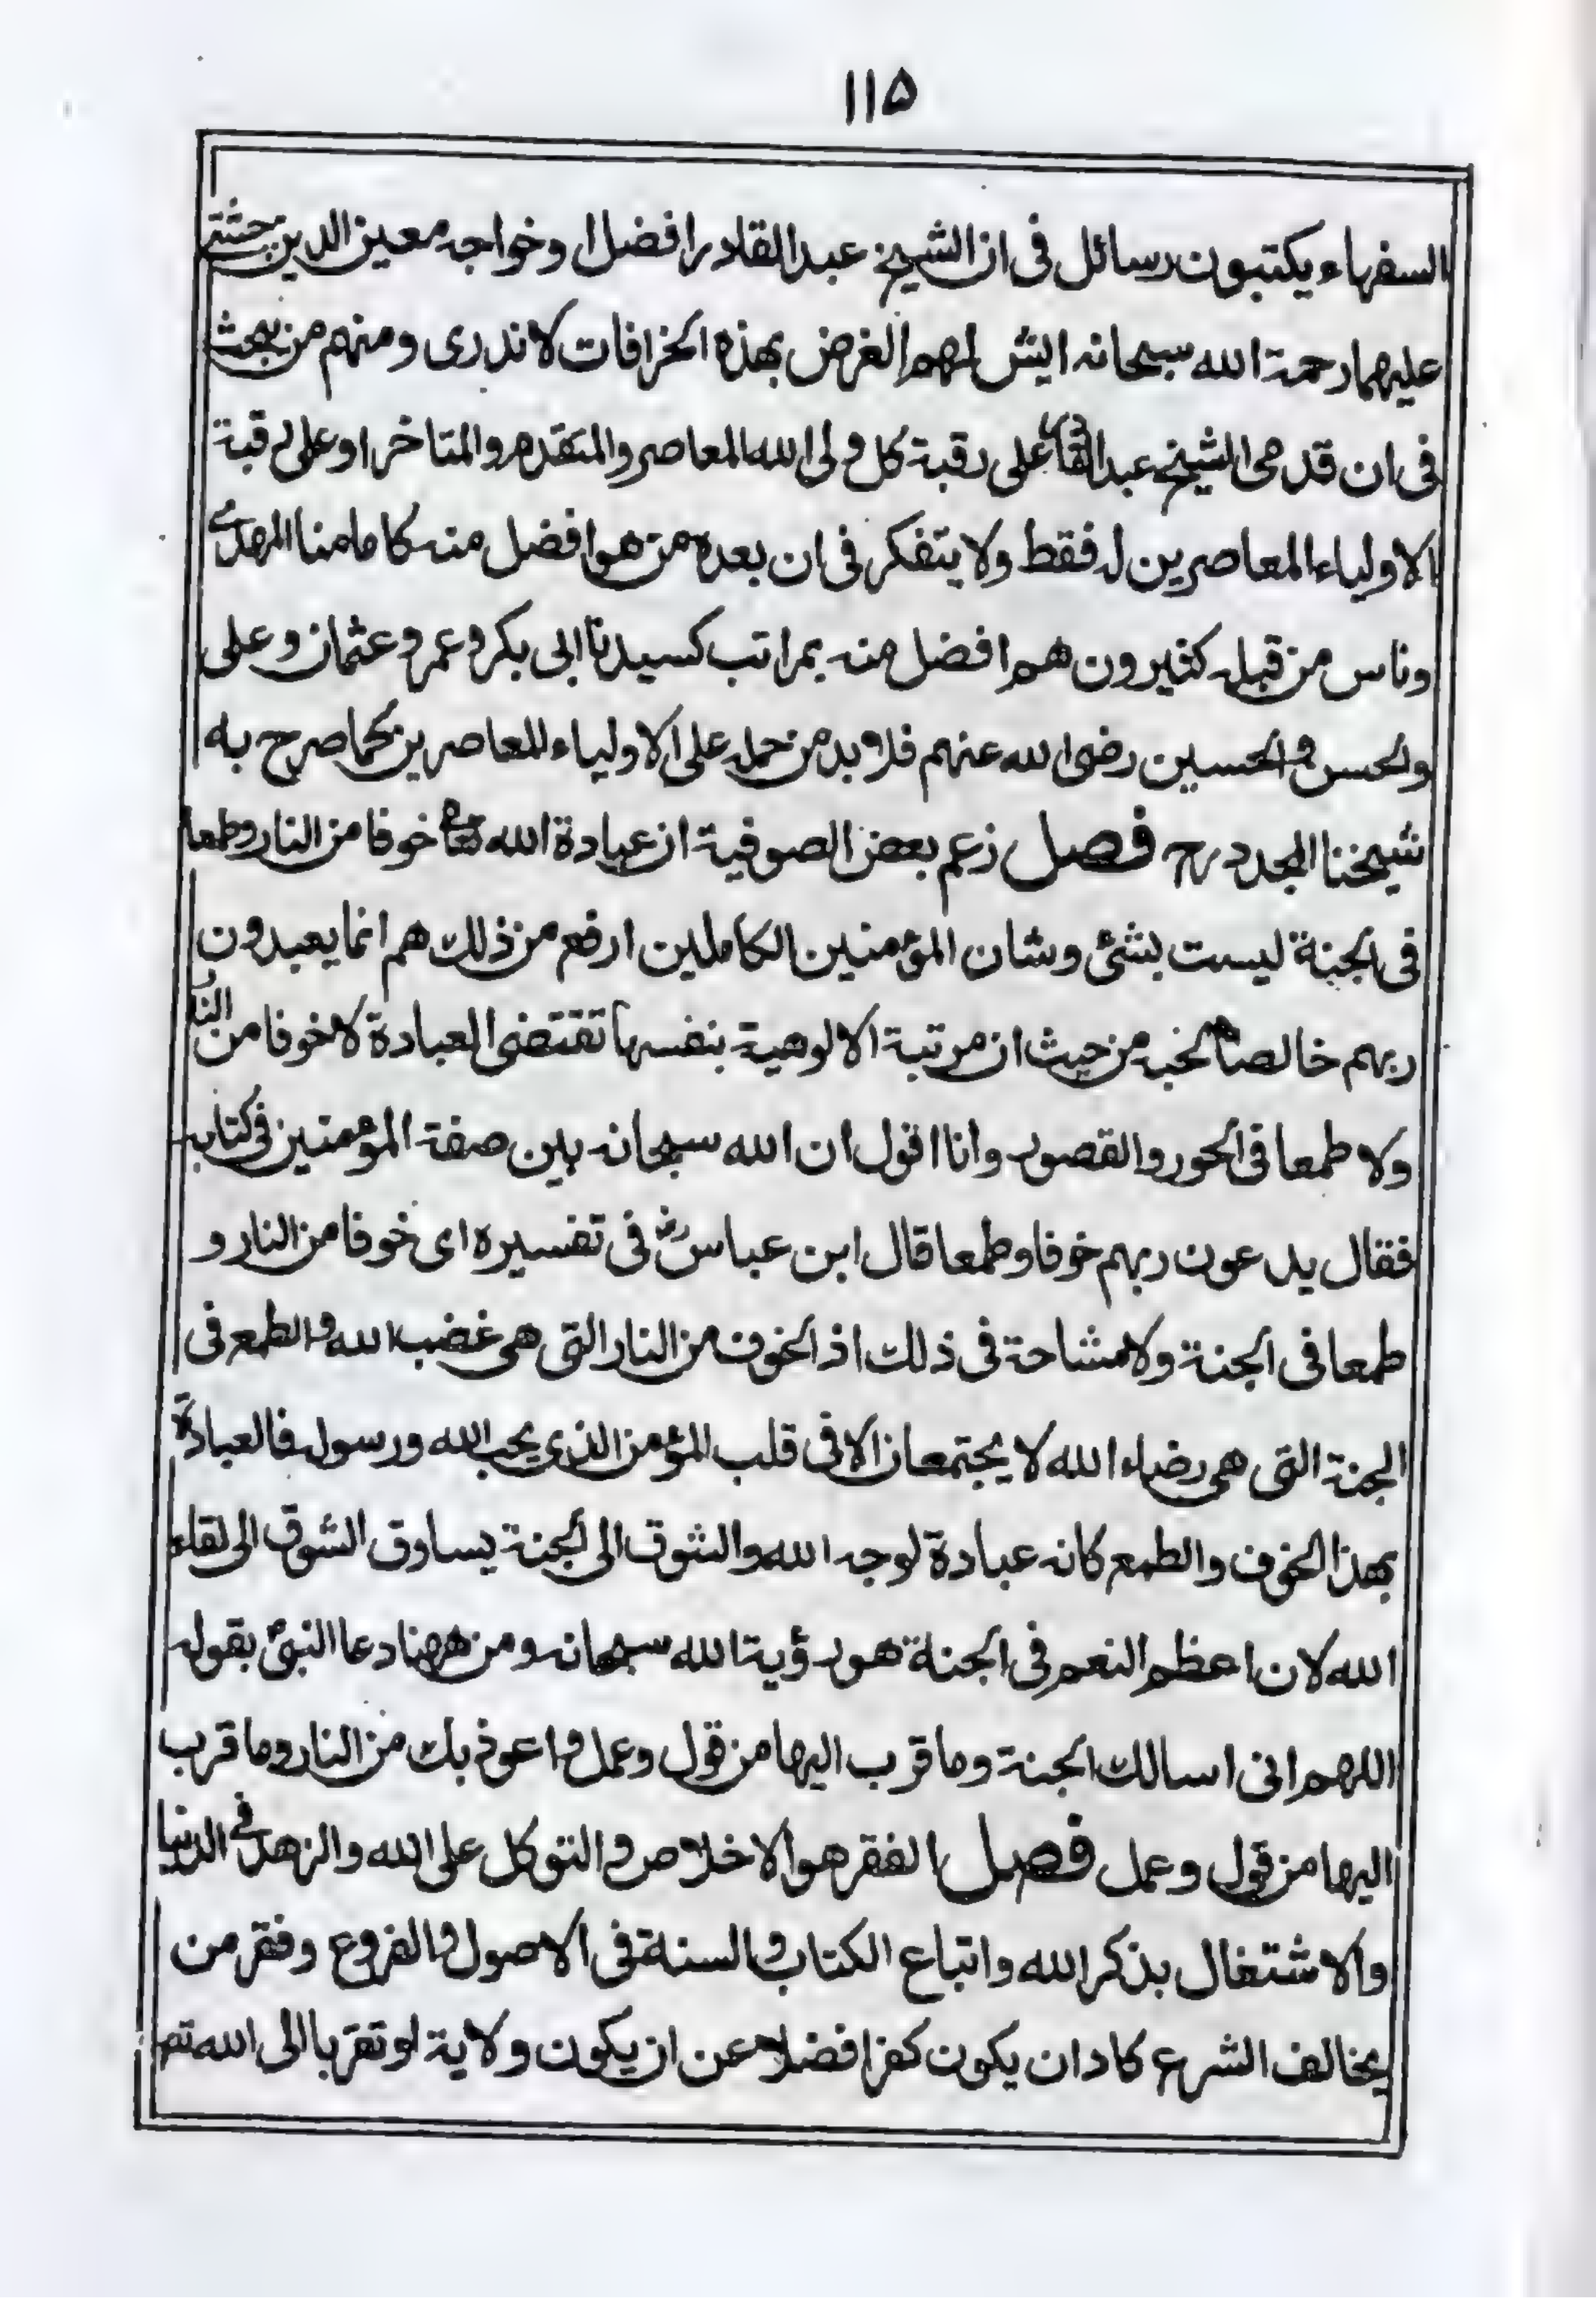 ۱۱۵
السفهاء يكتبون رسائل فى ان الشيخ عبد القادر افضل او خواجه معين الدين چشتى
عليهما رحمة الله سبحانه ايش لهم الغرض بهذه الخرافات لا ندرى و منهم من يبحث
فى ان قدمى الشيخ عبد القادر على رقبة كل ولى الله المعاصر والمتقدم والمتاخر او على رقبة
الاولياء المعاصرين له فقط ولا يتفكر فى ان بعده من هو افضل منه كامامنا المهدى
وناس من قبله كثيرون هم افضل منه بمراتب كسيدنا ابى بكر و عمر و عثمان و على
والحسن والحسين رضى الله عنهم فلا بد من حمله على الاولياء المعاصرين كما صرح به
شيخنا المجدد رح فصل زعم بعض الصوفية ان عبادة الله تعا خوفا من النار وطمعا
فى الجنة ليست بشئ وشان المؤمنين الكاملين ارفع من ذلك هم انما يعبدون
ربهم خالصا لحبه من حيث ان مرتبة الالوهية بنفسها تقتضى العبادة لا خوفا من النار
ولا طمعا فى الحور والقصور وانا اقول ان الله سبحانه بين صفة المؤمنين فى كتابه
فقال يدعون ربهم خوفا وطمعا قال ابن عباس رض فى تفسيره اى خوفا من النار و
طمعا فى الجنة ولا مشاحة فى ذلك اذ الخوف من النار التى هى غضب الله والطمع فى
الجنة التى هى رضاء الله لا يجتمعان الا فى قلب المؤمن الذى يحب الله ورسوله فالعبادة
بهذا الخوف والطمع كانه عبادة لوجه الله والشوق الى الجنة يساوق الشوق الى لقاء
الله لان اعظم النعم فى الجنة هو رؤية الله سبحانه ومن ههنا دعا النبى بقوله
اللهم انى اسالك الجنة وما قرب اليها من قول وعمل واعوذ بك من النار وما قرب
اليها من قول وعمل فصل الفقر هو الاخلاص والتوكل على الله والزهد فى الدنيا
والاشتغال بذكر الله واتباع الكتاب والسنة فى الاصول والفروع وفقر من
يخالف الشرع كاد ان يكون كفرا فضلا عن ان يكون ولاية او تقربا الى الله تعا